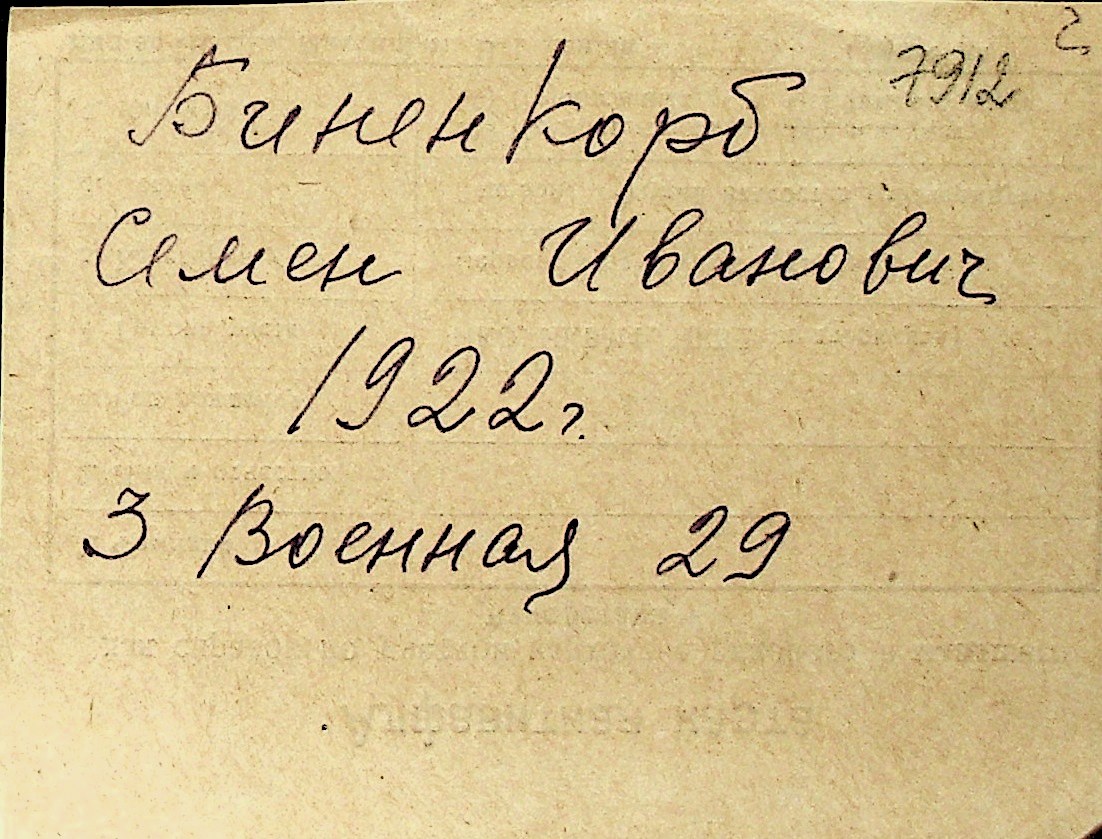 7912
Биненкорб
Семен Иванович
1922г.
3 Военная 29